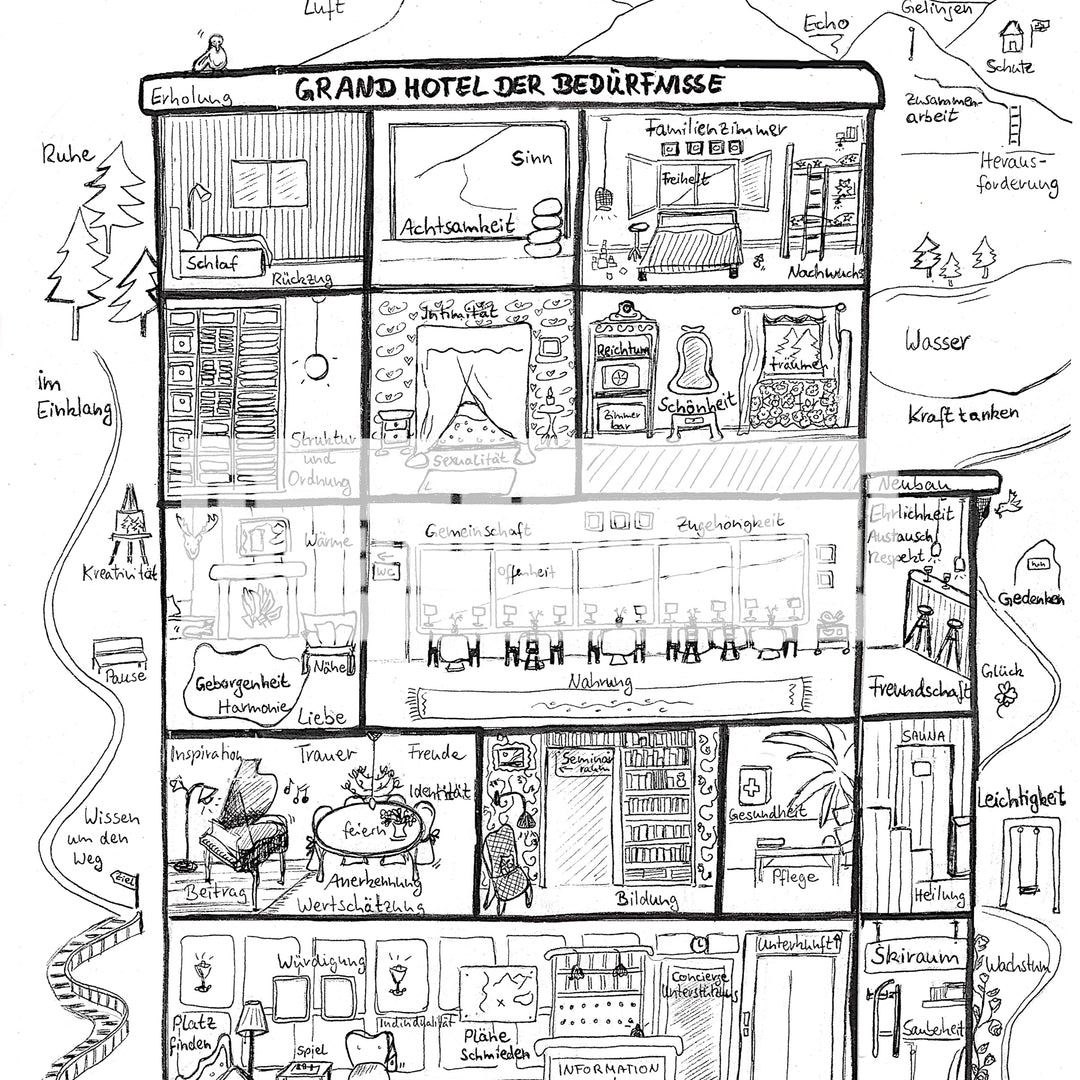 Luft
Echo
Gelingen
Schutz
Erholung
GRAND HOTEL DER BEDÜRFNISSE
Zusammen-
arbeit
Heraus-
forderung
Ruhe
Schlaf
Rückzug
Sinn
Achtsamkeit
Familienzimmer
Freiheit
Nachwuchs
im
Einklang
Struktur
und
Ordnung
Intimität
Sexualität
Reichtum
Zimmer
bar
Schönheit
träumen
Wasser
Kraft tanken
Kreativität
Pause
Wärme
Geborgenheit
Harmonie
Nähe
Liebe
WC
Gemeinschaft
Offenheit
Zugehörigkeit
Nahrung
Neubau
Ehrlichkeit
Austausch
Respekt
Freundschaft
Gedenken
Glück
Inspiration
Trauer
Freude
Identität
feiern
Beitrag
Anerkennung
Wertschätzung
Seminar
raum
Bildung
Gesundheit
Pflege
SAUNA
Heilung
Leichtigkeit
Wissen
um den
Weg
Ziel
Würdigung
Individualität
Platz
finden
Spiel
Pläne
Schmieden
INFORMATION
Concierge
Unterstützung
Unterkunft
Skiraum
Sauberkeit
Wachstum